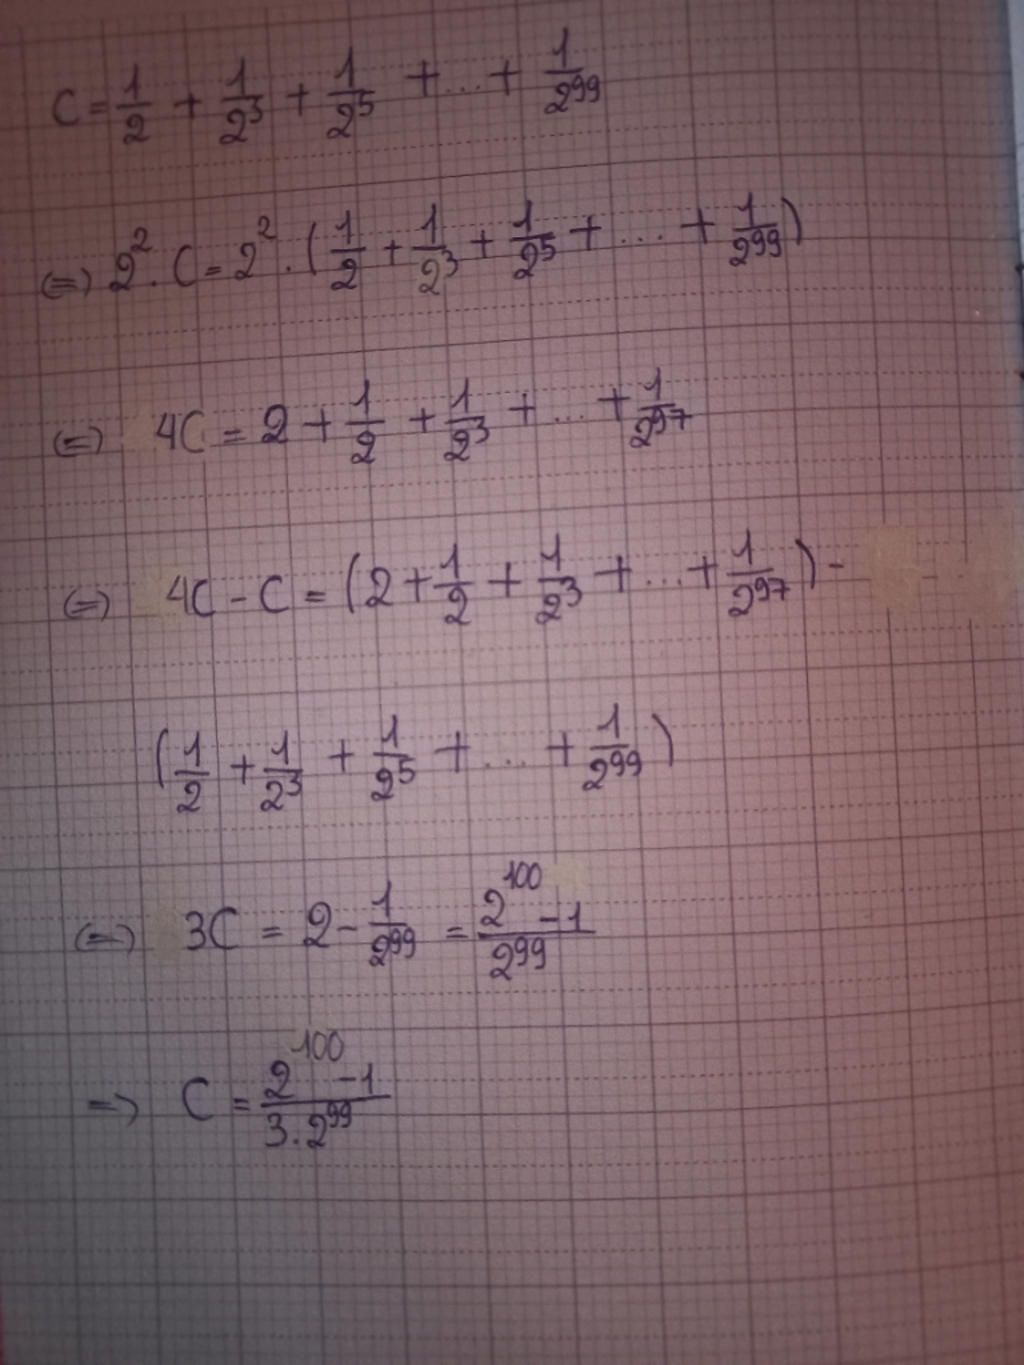 C = 1/2 + 1/2³ + 1/2⁵ + ... + 1/2⁹⁹
(=) 2² . C = 2² . (1/2 + 1/2³ + 1/2⁵ + .... + 1/2⁹⁹)
(=) 4C = 2 + 1/2 + 1/2³ + ... + 1/2⁹⁷
(=) 4C - C = (2 + 1/2 + 1/2³ + ... + 1/2⁹⁷) -
(1/2 + 1/2³ + 1/2⁵ + ... + 1/2⁹⁹)
(=) 3C = 2 - 1/2⁹⁹ = (2¹⁰⁰ - 1)/2⁹⁹
=) C = (2¹⁰⁰ - 1)/(3 . 2⁹⁹)